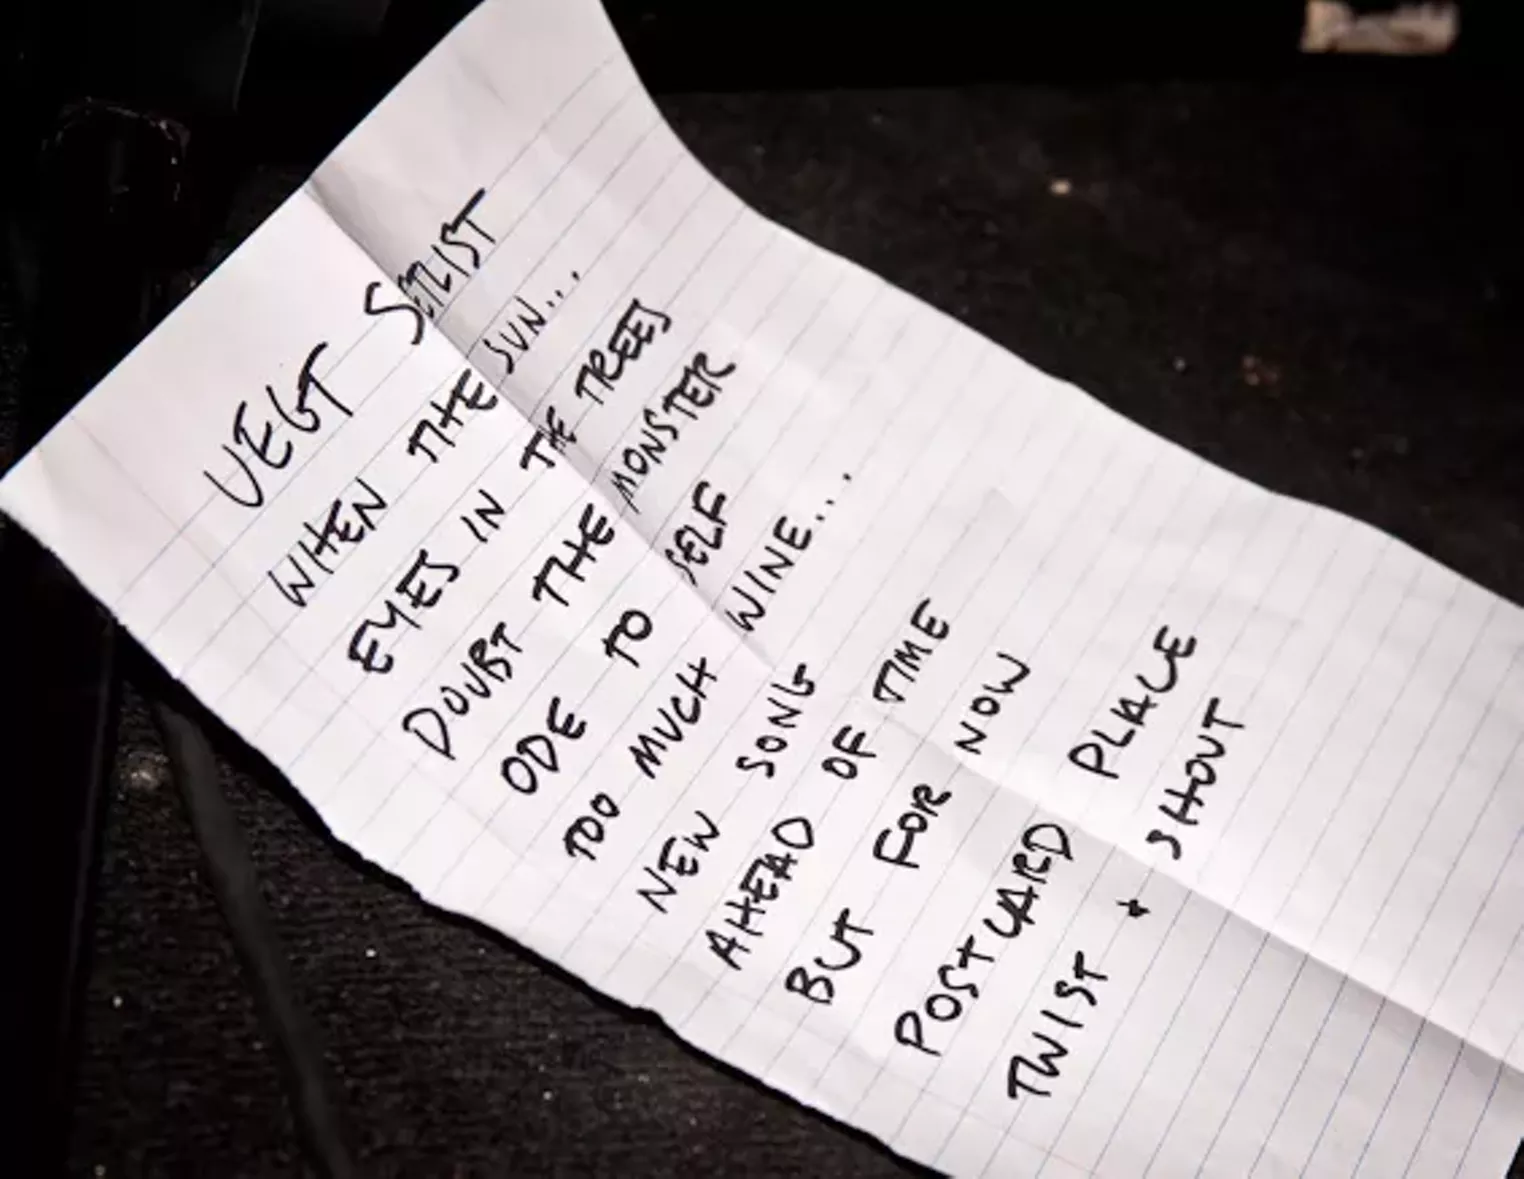 VEGT SETLIST
WHEN THE SUN...
EYES IN THE TREES
DOUBT THE MONSTER
ODE TO SELF
TOO MUCH WINE...
NEW SONG
AHEAD OF TIME
BUT FOR NOW
POSTCARD PLACE
TWIST + SHOUT